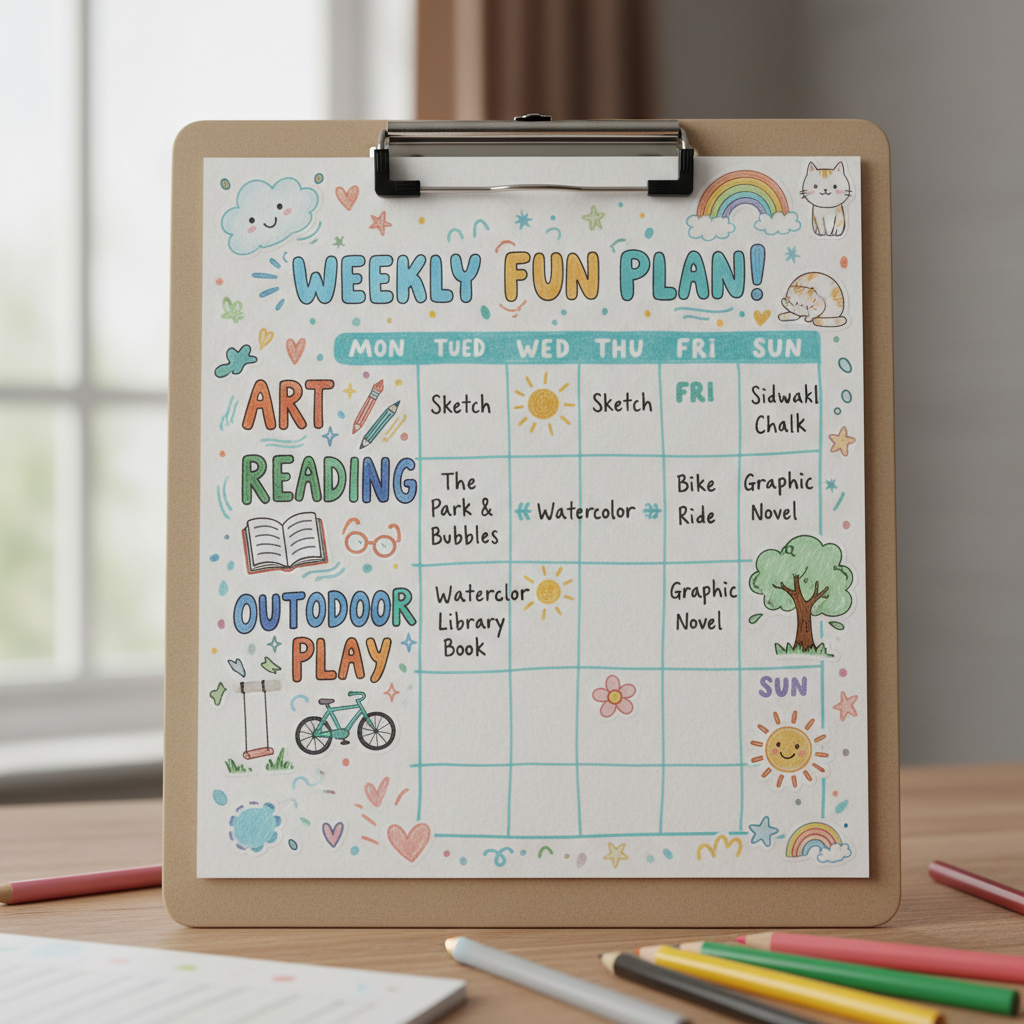 WEEKLY FUN PLAN!
MON TUED WED THU FRi SUN
ART
Sketch
Sketch
FRI
Sidwakl
Chalk
READING
The
Park &
Bubbles
Watercolor
Bike
Ride
Graphic
Novel
OUTODOOR
PLAY
Waterclor
Library
Book
Graphic
Novel
SUN